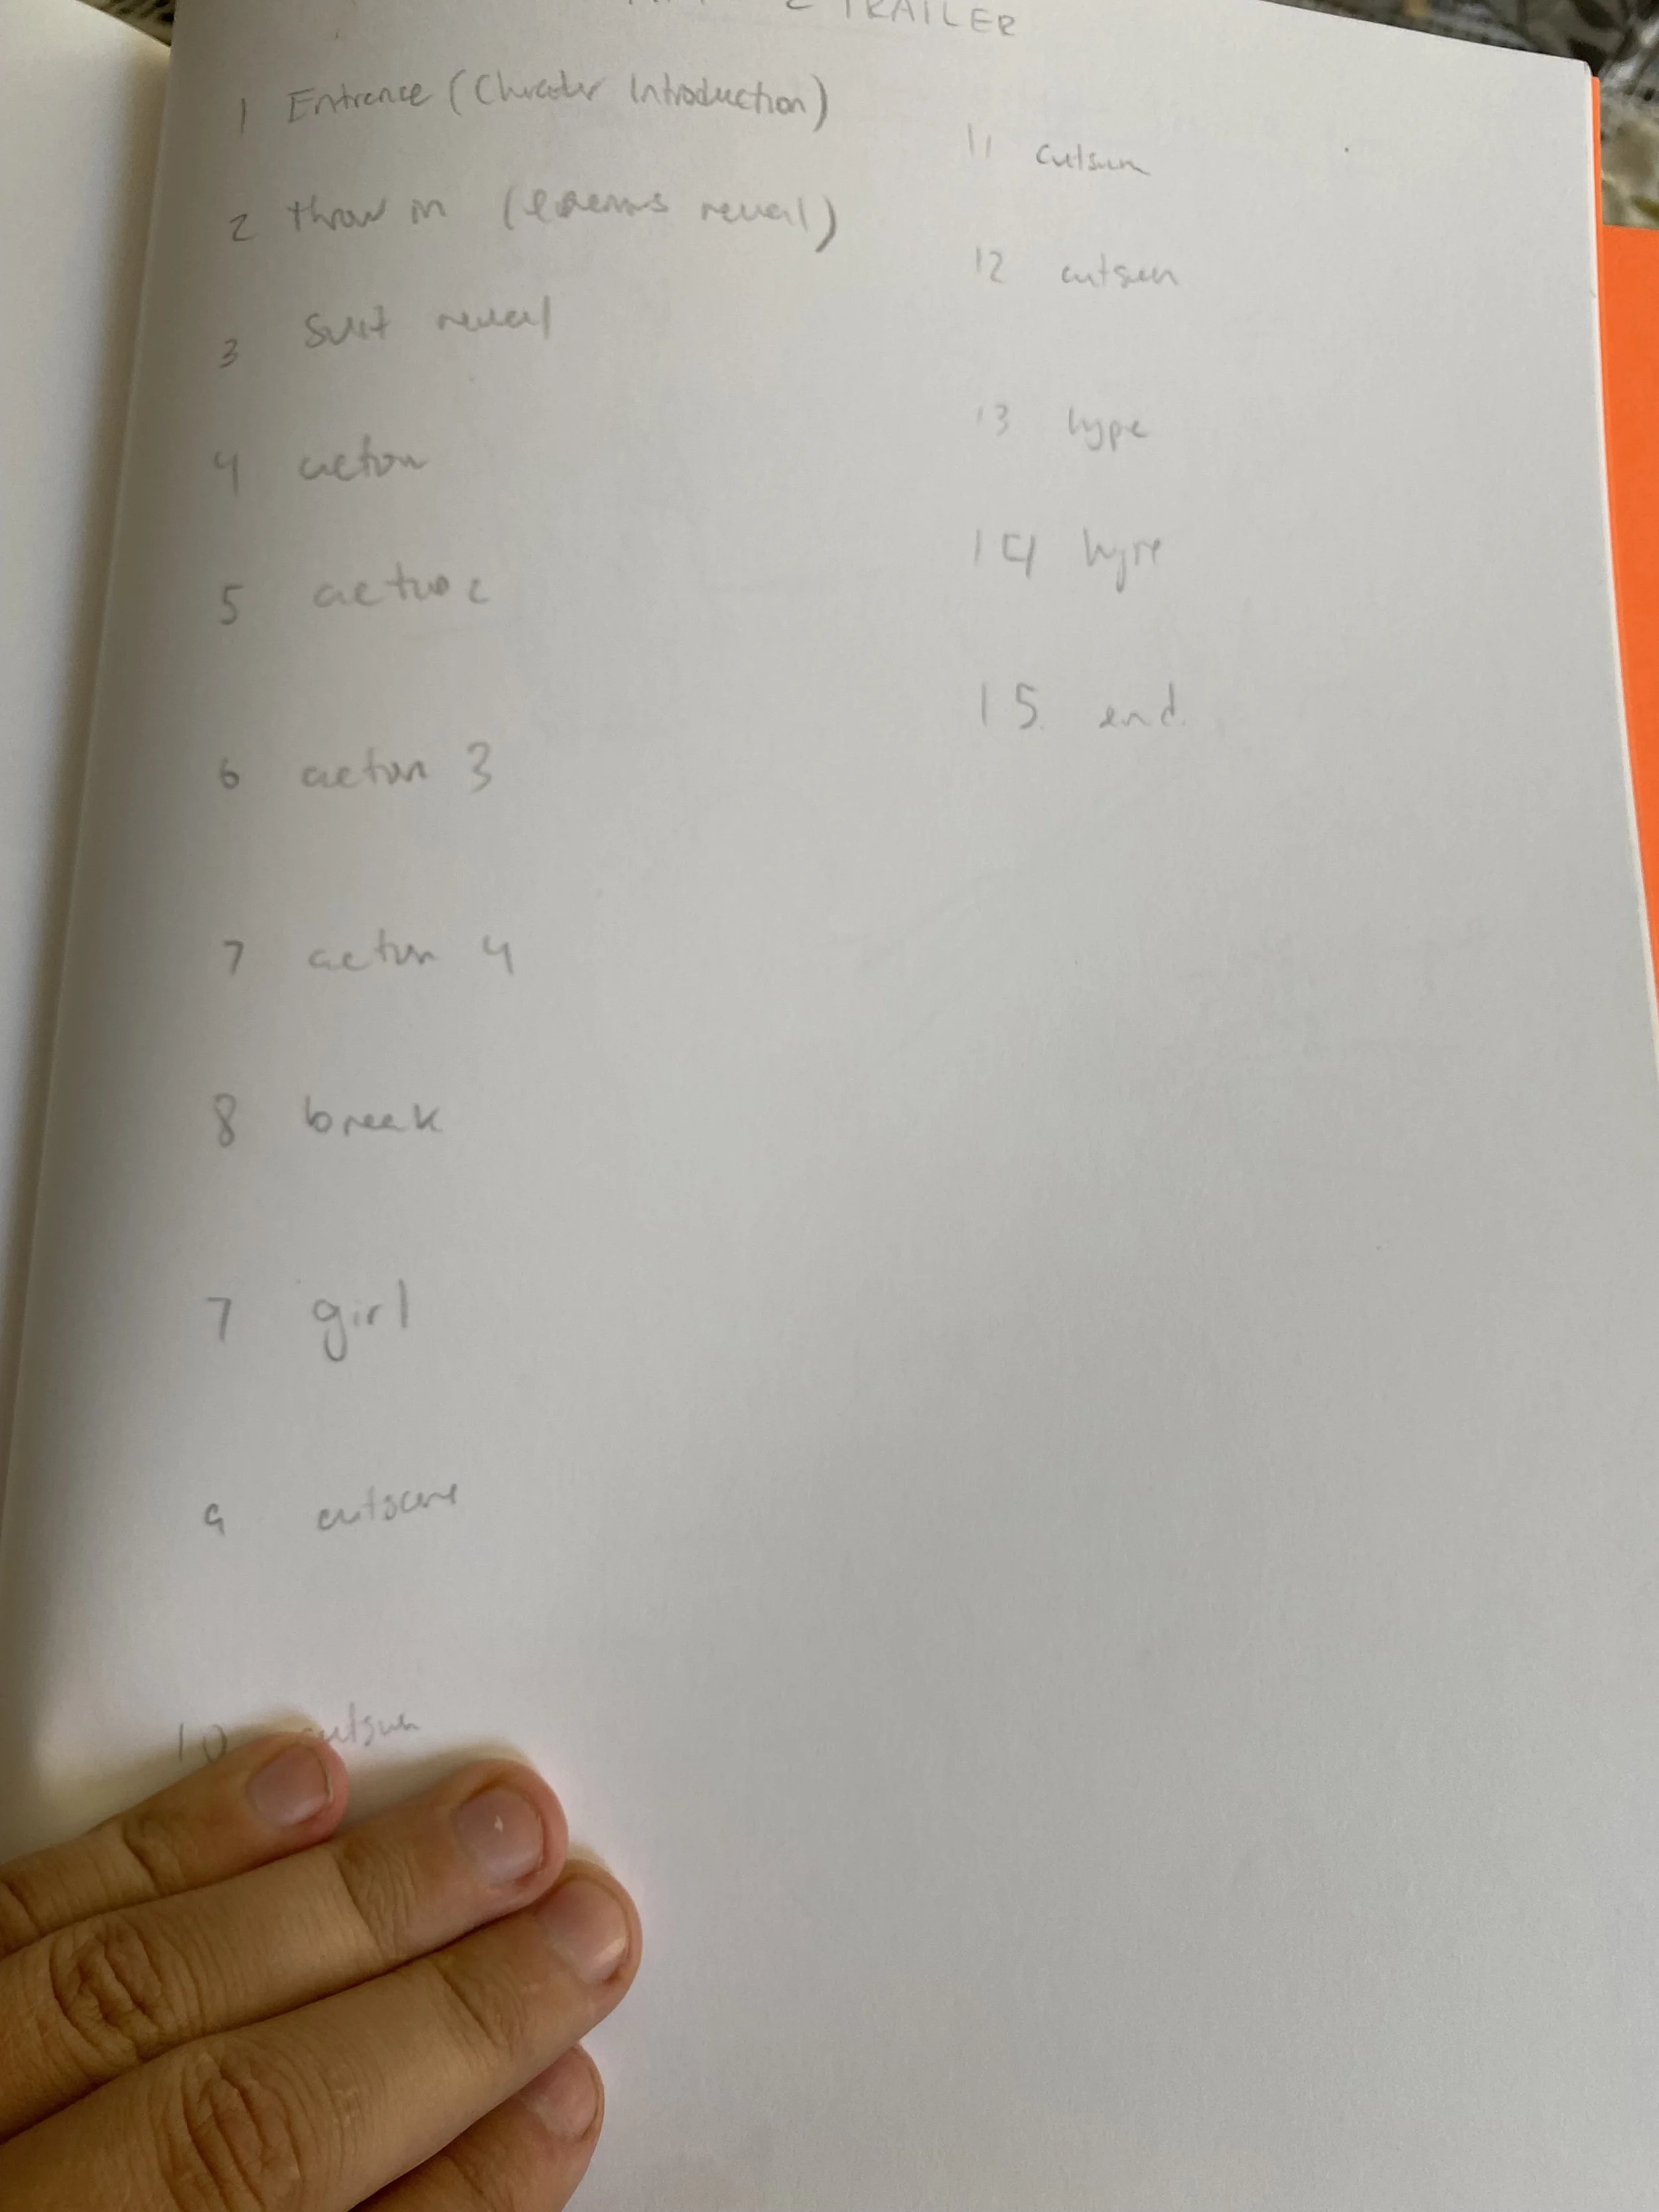 2 TRAILER
1 Entrance (Chracter Introduction)
2 throw in ( reveal)
3 Suit reveal
4 action
5 action 2
6 action 3
7 action 4
8 break
7 girl
9 cutscene
10 cutscene
11 cutscene
12 cutscene
13 hype
14 hype
15. end.